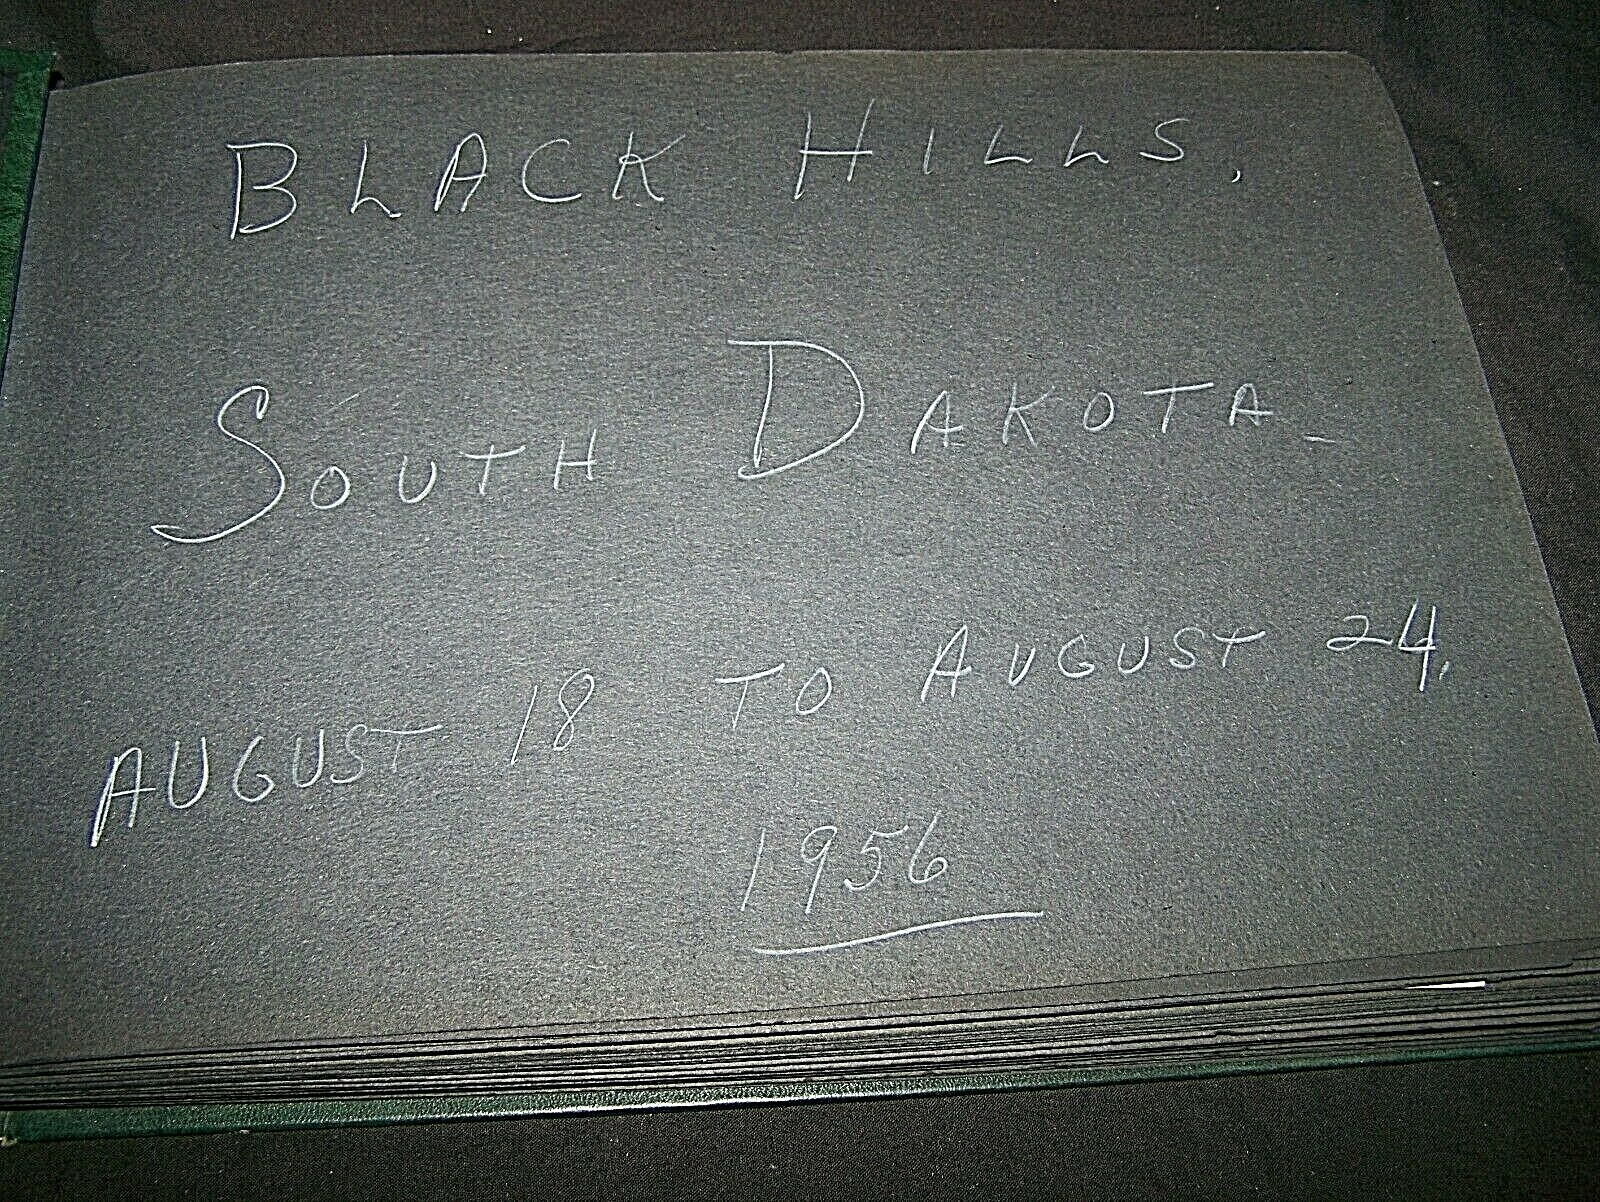 BLACK HILLS,
SOUTH DAKOTA -
AUGUST 18 TO AUGUST 24,
1956